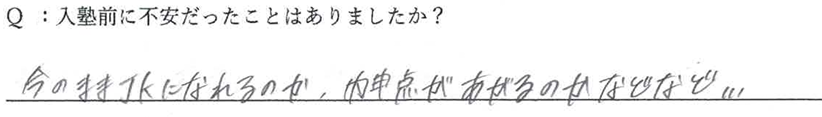 Q ：入塾前に不安だったことはありましたか？
今のままJKになれるのか、内申点があがるのかなどなど...